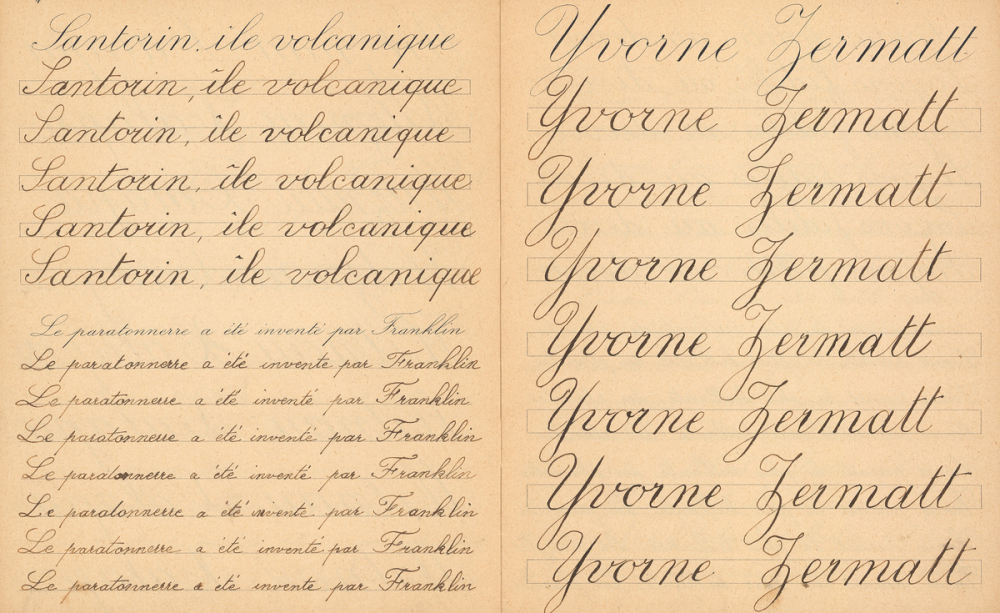 Santorin, île volcanique
Santorin, île volcanique
Santorin, île volcanique
Santorin, île volcanique
Santorin, île volcanique
Santorin, île volcanique
Le paratonnerre a été inventé par Franklin
Le paratonnerre a été inventé par Franklin
Le paratonnerre a été inventé par Franklin
Le paratonnerre a été inventé par Franklin
Le paratonnerre a été inventé par Franklin
Le paratonnerre a été inventé par Franklin
Le paratonnerre a été inventé par Franklin
Le paratonnerre a été inventé par Franklin
Yvorne Zermatt
Yvorne Zermatt
Yvorne Zermatt
Yvorne Zermatt
Yvorne Zermatt
Yvorne Zermatt
Yvorne Zermatt
Yvorne Zermatt